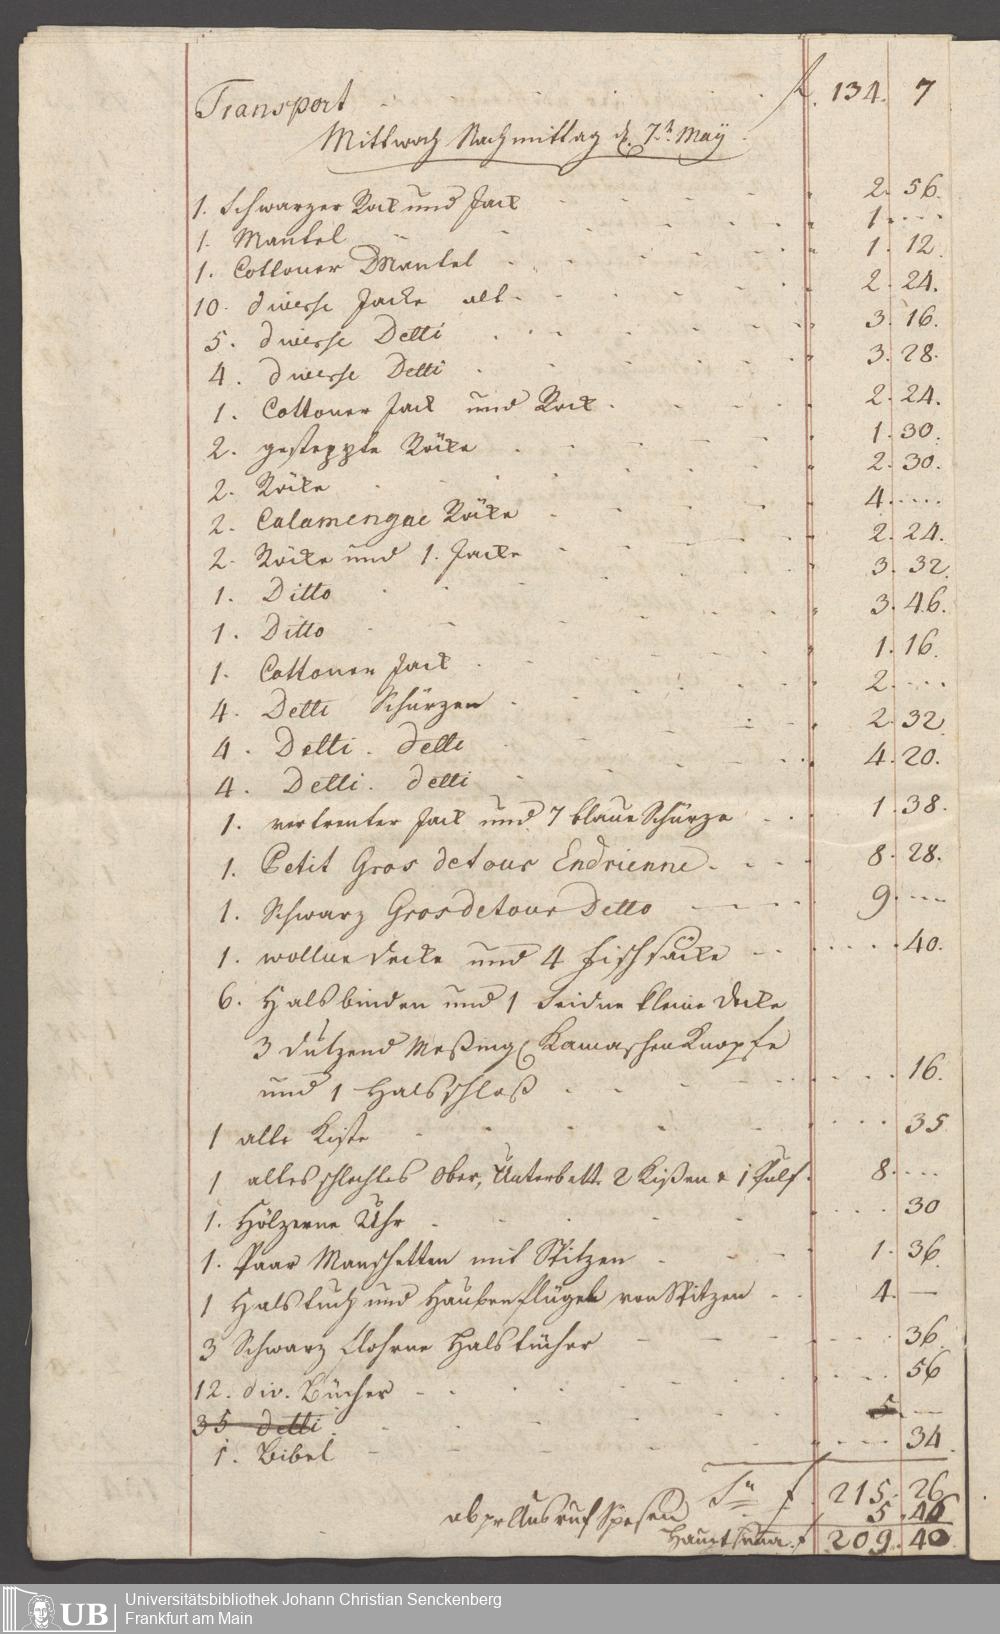 Transport - - - - - f. 134. 7
Mittwoch Nachmittag d. 7t. Maÿ
1. Schwarzer Rock und Jack - - - - 2. 56.
1. Mantel - - - - 1. ....
1. Cottoner Mantel - - - - 1. 12.
10. diverse Jacke alt - - - - 2. 24.
5. diverse Detti - - - - 3. 16.
4. diverse Detti - - - - 3. 28.
1. Cottoner Jack und Rock - - - - 2. 24.
2. gesteppte Röcke - - - - 1. 30.
2. Röcke - - - - 2. 30.
2. Calamengae Röcke - - - - 4. ....
2. Röcke und 1. Jacke - - - - 2. 24.
1. Ditto - - - - 3. 32.
1. Ditto - - - - 3. 46.
1. Cottonen Jack - - - - 1. 16.
4. Detti Schürzen - - - - 2. ....
4. Detti. detti - - - - 2. 32.
4. Detti. detti - - - - 4. 20.
1. Jack und 7 blaue Schürze - - 1. 38.
1. Petit Gros detour Endrienne - - - 8. 28.
1. Schwarz Grosdetour Detto - - - 9. ....
1. wollne Decke und 4 Fischsäcke - - - 40.
6. Halsbinden und 1 Seidne kleine Decke
3 Dutzend Meßing Kamaschen Knopfe
und 1 Halsschloß - - - - 16.
1 alte Kiste - - - - 35
1 altes schlechtes Ober, Unterbett 2 Kißen & 1 Pulf. 8. ....
1. Hölzerne Uhr - - - - 30
1. Paar Manschetten mit Spitzen - - - 1. 36.
1 Halstuch und Haubenflügel von Spitzen - - 4. —
3 Schwarz flohrne Halstücher - - - - 36.
12. div. Bücher - - - - 56
35 detti - - - - 5. —
1. Bibel - - - - 34.
Sa f. 215. 26
ab pr Ausruf Spesen 5. 46
Haupt Suma f 209. 40
Universitätsbibliothek Johann Christian Senckenberg
Frankfurt am Main
UB